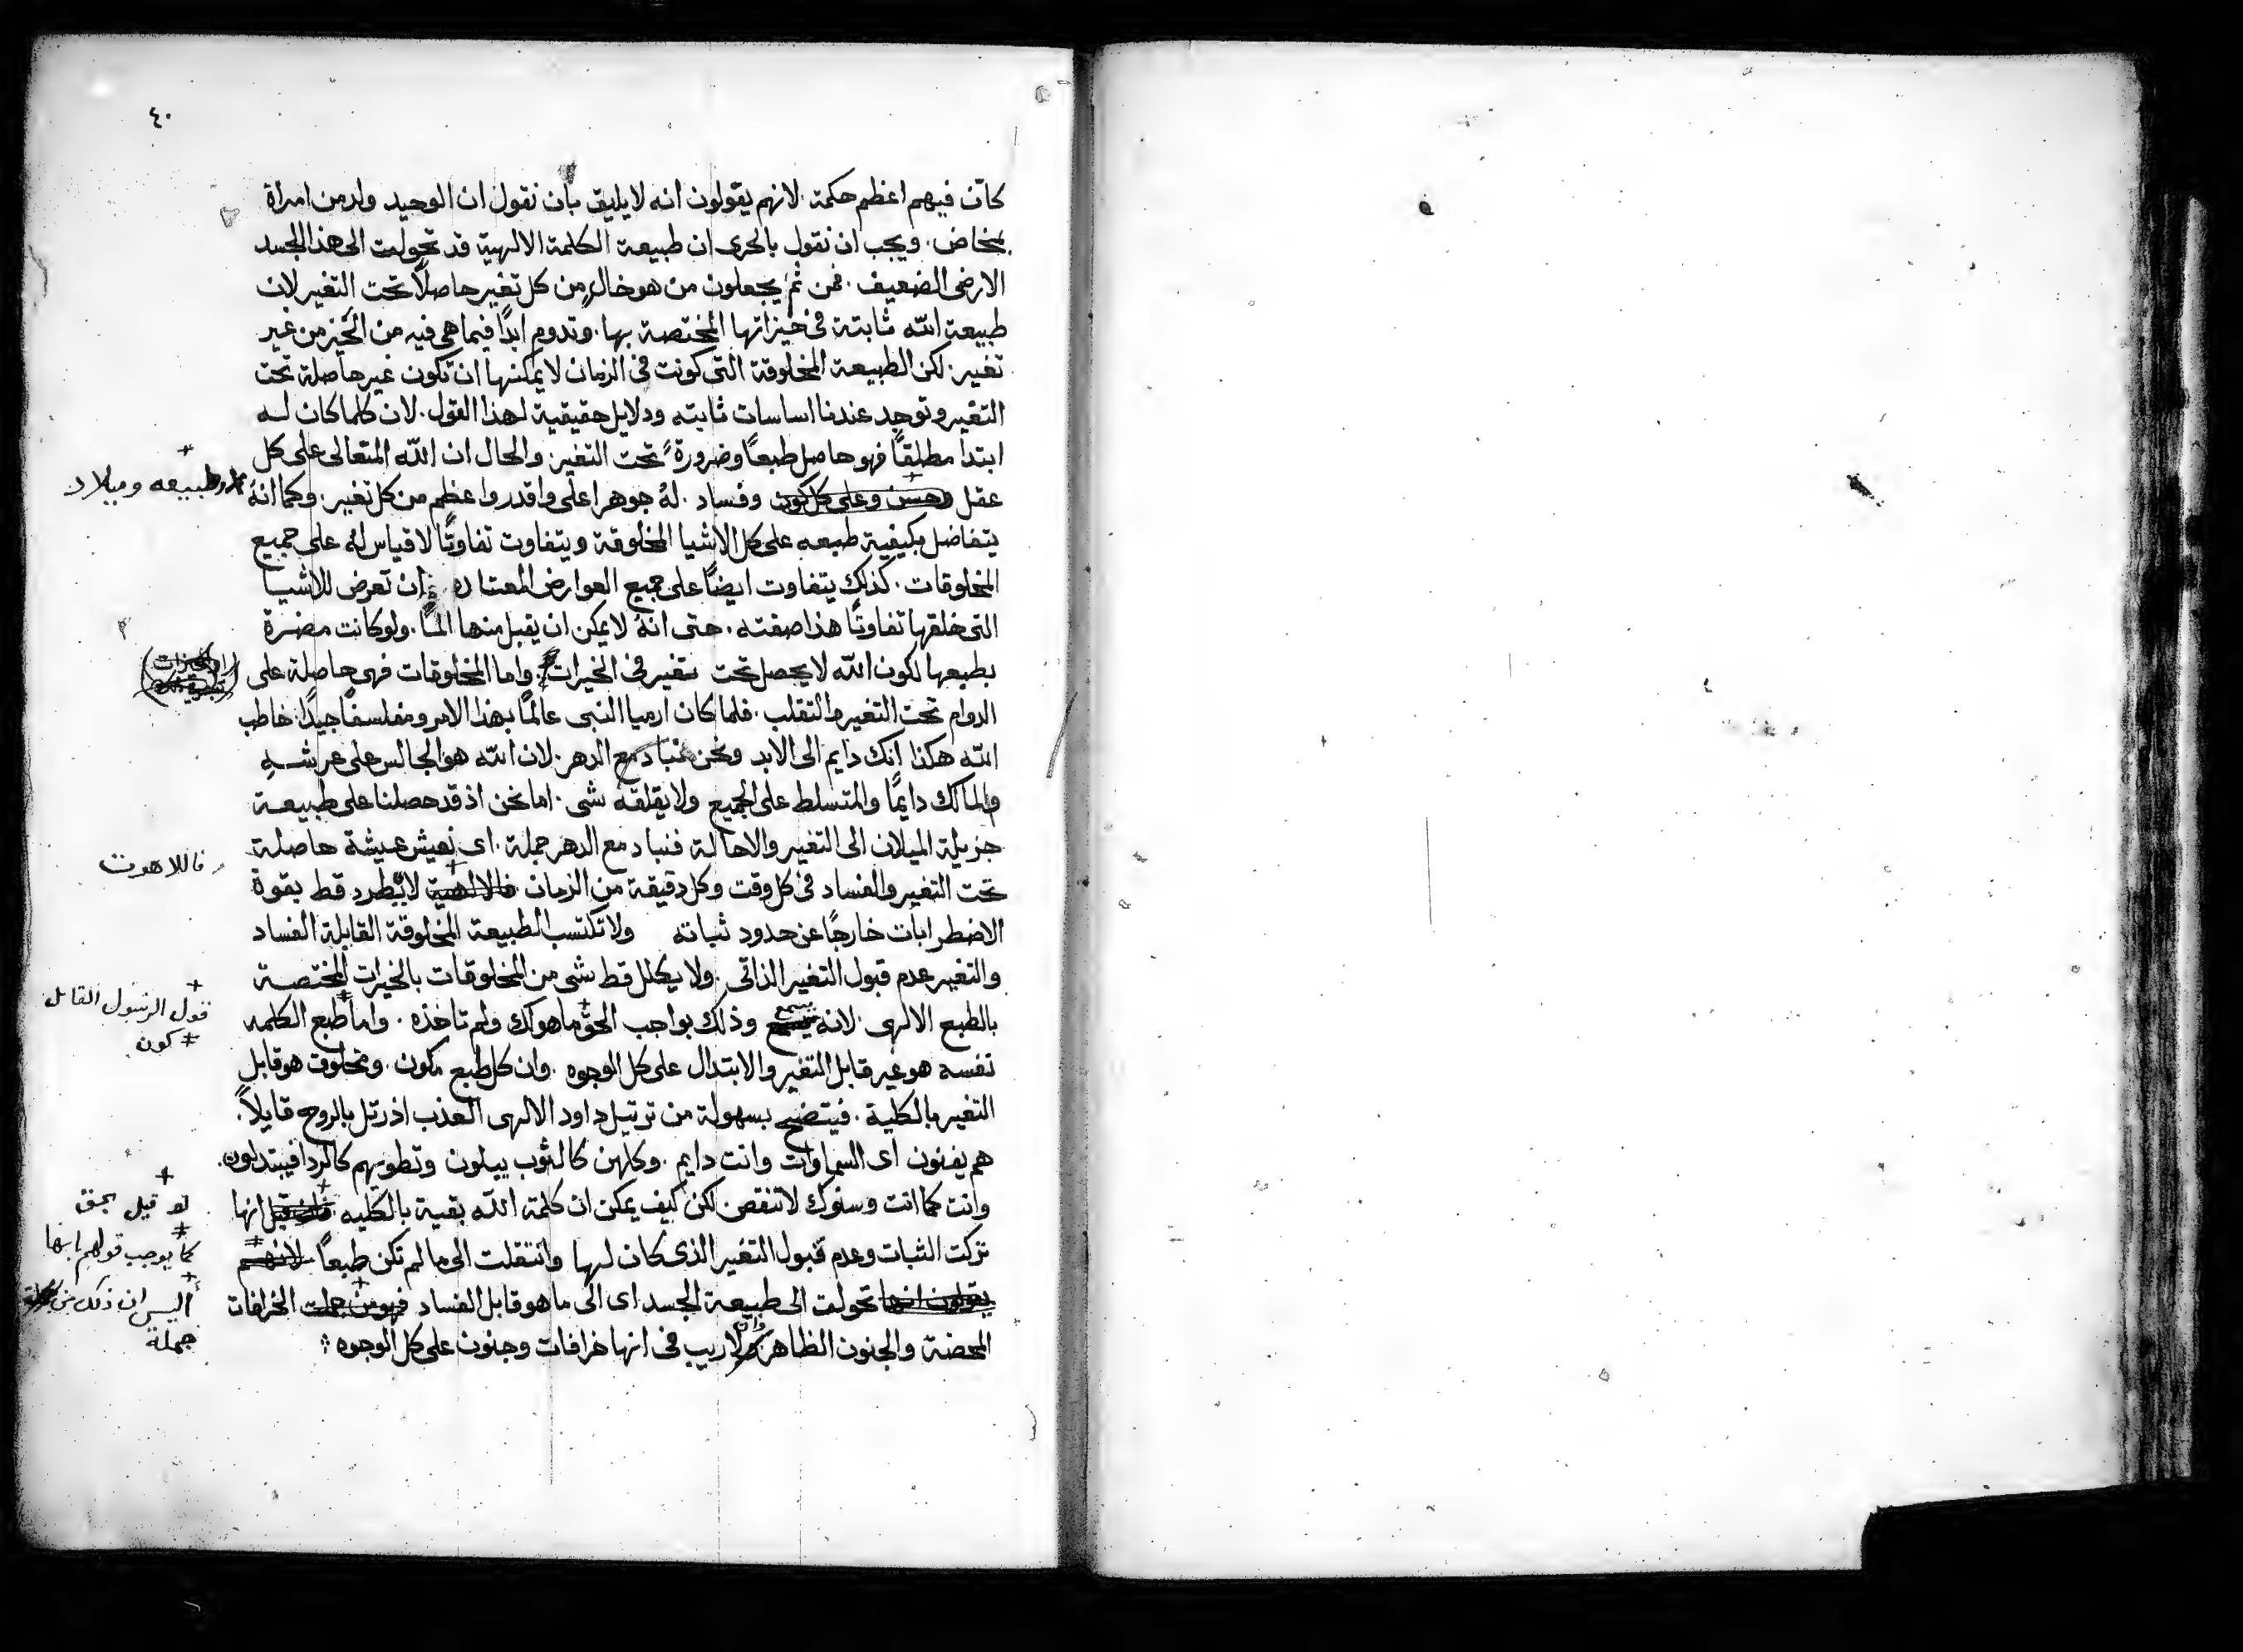 ٤٠
كانّ فيهم اعظم حكمة. لانهم يقولون انه لا يليق بان نقول ان الوحيد ولد من امراة
بمخاض. ويجب ان نقول بالحرى ان طبيعة الكلمة الالهية قد تحولت الى هذا الجسد
الارضى الضعيف. فمن ثم يجعلون من هو خالٍ من كل تغير حاصلًا تحت التغير لان
طبيعة الله ثابتة فى خيراتها المختصة بها. وتدوم ابدًا فيما هى فيه من الحيز من غير
تغير. لكن الطبيعة المخلوقة التى كونت فى الزمان لا يمكنها ان تكون غير حاصلة تحت
التغير وتوجد عندنا اساسات ثابته ودلايل حقيقية لهذا القول. لان كلما كان له
ابتدا مطلقًا فهو حاصل طبعًا وضرورةً تحت التغير. والحال ان الله المتعالى على كل
عقل وحسن وعلى كل كون وفساد. لهُ جوهر اعلى واقدر واعظم من كل تغير. وكما انهُ
وطبيعه وميلاد
يتفاضل بكيفية طبعه على كل الاشيا المخلوقة ويتفاوت تفاوتًا لا قياس له على جميع
المخلوقات. كذلك يتفاوت ايضًا على جميع العوارض المعتاده ان تعرض للاشيا
التى خلقها تفاوتًا هذا صفته. حتى انهُ لا يمكن ان يقبل منها المًا. ولو كانت مضرة
بطبعها لكون الله لا يحصل تحت تغير فى الخيرات. واما المخلوقات فهى حاصلة على
الدوام تحت التغير والتقلب. فلما كان ارميا النبى عالمًا بهذا الامر ومفلسفًا جيدًا. خاطب
الله هكذا انك دايم الى الابد ونحن نباد مع الدهر. لان الله هو الجالس على عرشهِ
والمالك دايمًا والمتسلط على الجميع ولا يقلقه شى. اما نحن اذ قد حصلنا على طبيعة
جزيلة الميلان الى التغير والاحالة فنباد مع الدهر جملة. اى نعيش عيشة حاصلة
فاللاهوت
تحت التغير والفساد فى كل وقت وكل دقيقة من الزمان. فالالهية لا يطرد قط بقوة
الاضطرابات خارجًا عن حدود ثباته ولا تكتسب الطبيعة المخلوقة القابلة الفساد
والتغير عدم قبول التغير الذاتى. ولا يكلل قط شى من المخلوقات بالخيرات المختصة
قول الرسول القايل
بالطبع الالهى. لانه يسمع وذلك بواجب الحق ما هو لك ولم تاخذه. واما طبع الكلمه
كون
نفسه هو غير قابل التغير والابتدال على كل الوجوه. وان كل طبع مكون. ومخلوق هو قابل
التغير بالكلية. فيتضح بسهولة من ترتيل داود الالهى العذب اذ رتل بالروح قايلاً.
هم يفنون اى السماوات وانت دايم. وكلهن كالثوب يبلون وتطويهم كالردا فيبتدلون.
وانت كما انت وسنوك لا تنقص. لكن كيف يمكن ان كلمة الله بقية بالكليه فان قيل انها
لو قيل بحق
تركت الثبات وعدم قبول التغير الذى كان لها وانتقلت الى ما لم تكن طبعًا لانهم
كما يوجب قولهم انها
يقولون انها تحولت الى طبيعة الجسد اى الى ما هو قابل الفساد فهو من جملت الخرافات
أليس ان ذلك من
جملة
المحضة والجنون الظاهر ولا ريب فى انها خرافات وجنون على كل الوجوه